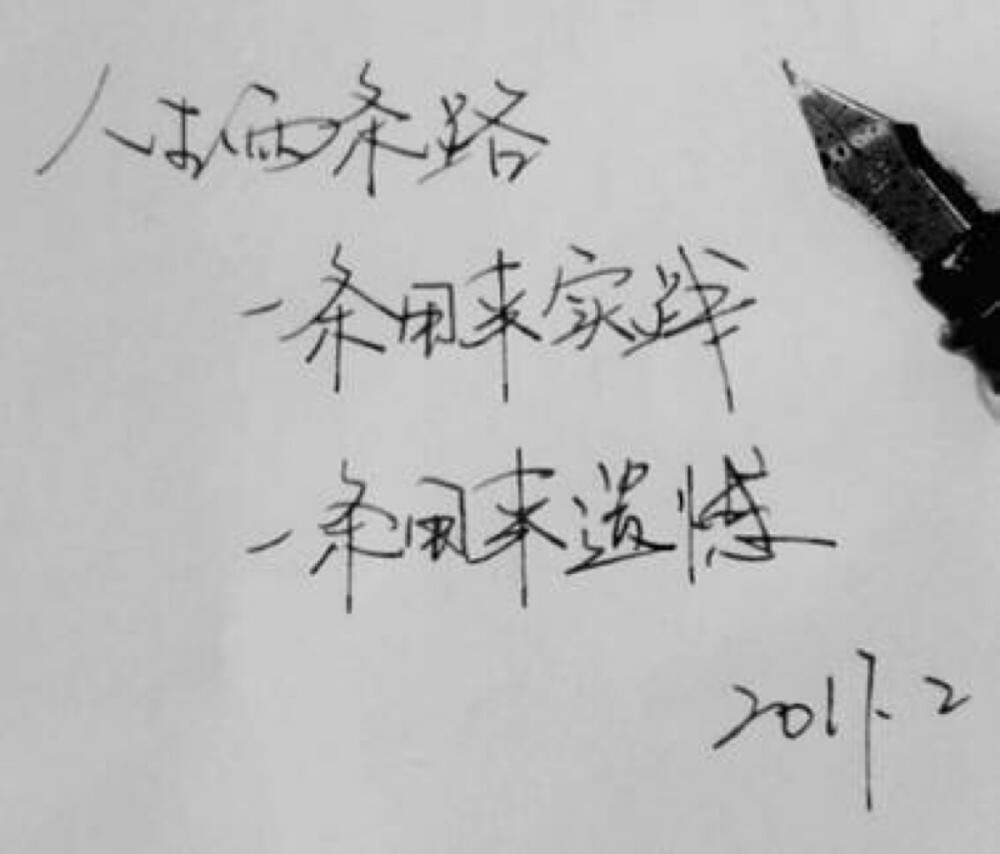 人生两条路
一条用来实践
一条用来遗憾
2017.2